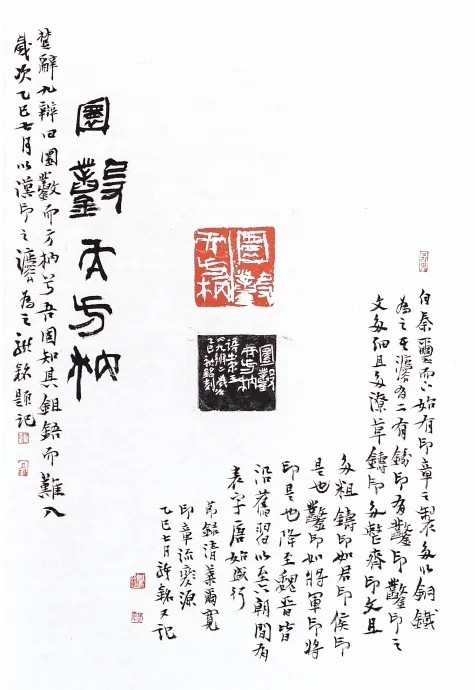 自秦璽而下始有印章之製多以銅鐵
為之其灋有二有鑄印有鑿印鑿印之
文多細且多潦草鑄印多整齊印文且
多粗鑄印如君印侯印
是也鑿印如將軍印將
印是也降至魏晉皆
沿舊習以至六朝間有
表字唐始盛行
節錄清葉爾寬
印章流變源
乙巳七月許銘又記
圜鑿
而方枘
圜鑿
而方枘
圜鑿而方枘
楚辭九辯曰圜鑿而方枘兮吾固知其鉏鋙而難入
歲次乙巳七月以漢印之灋為之許銘題記